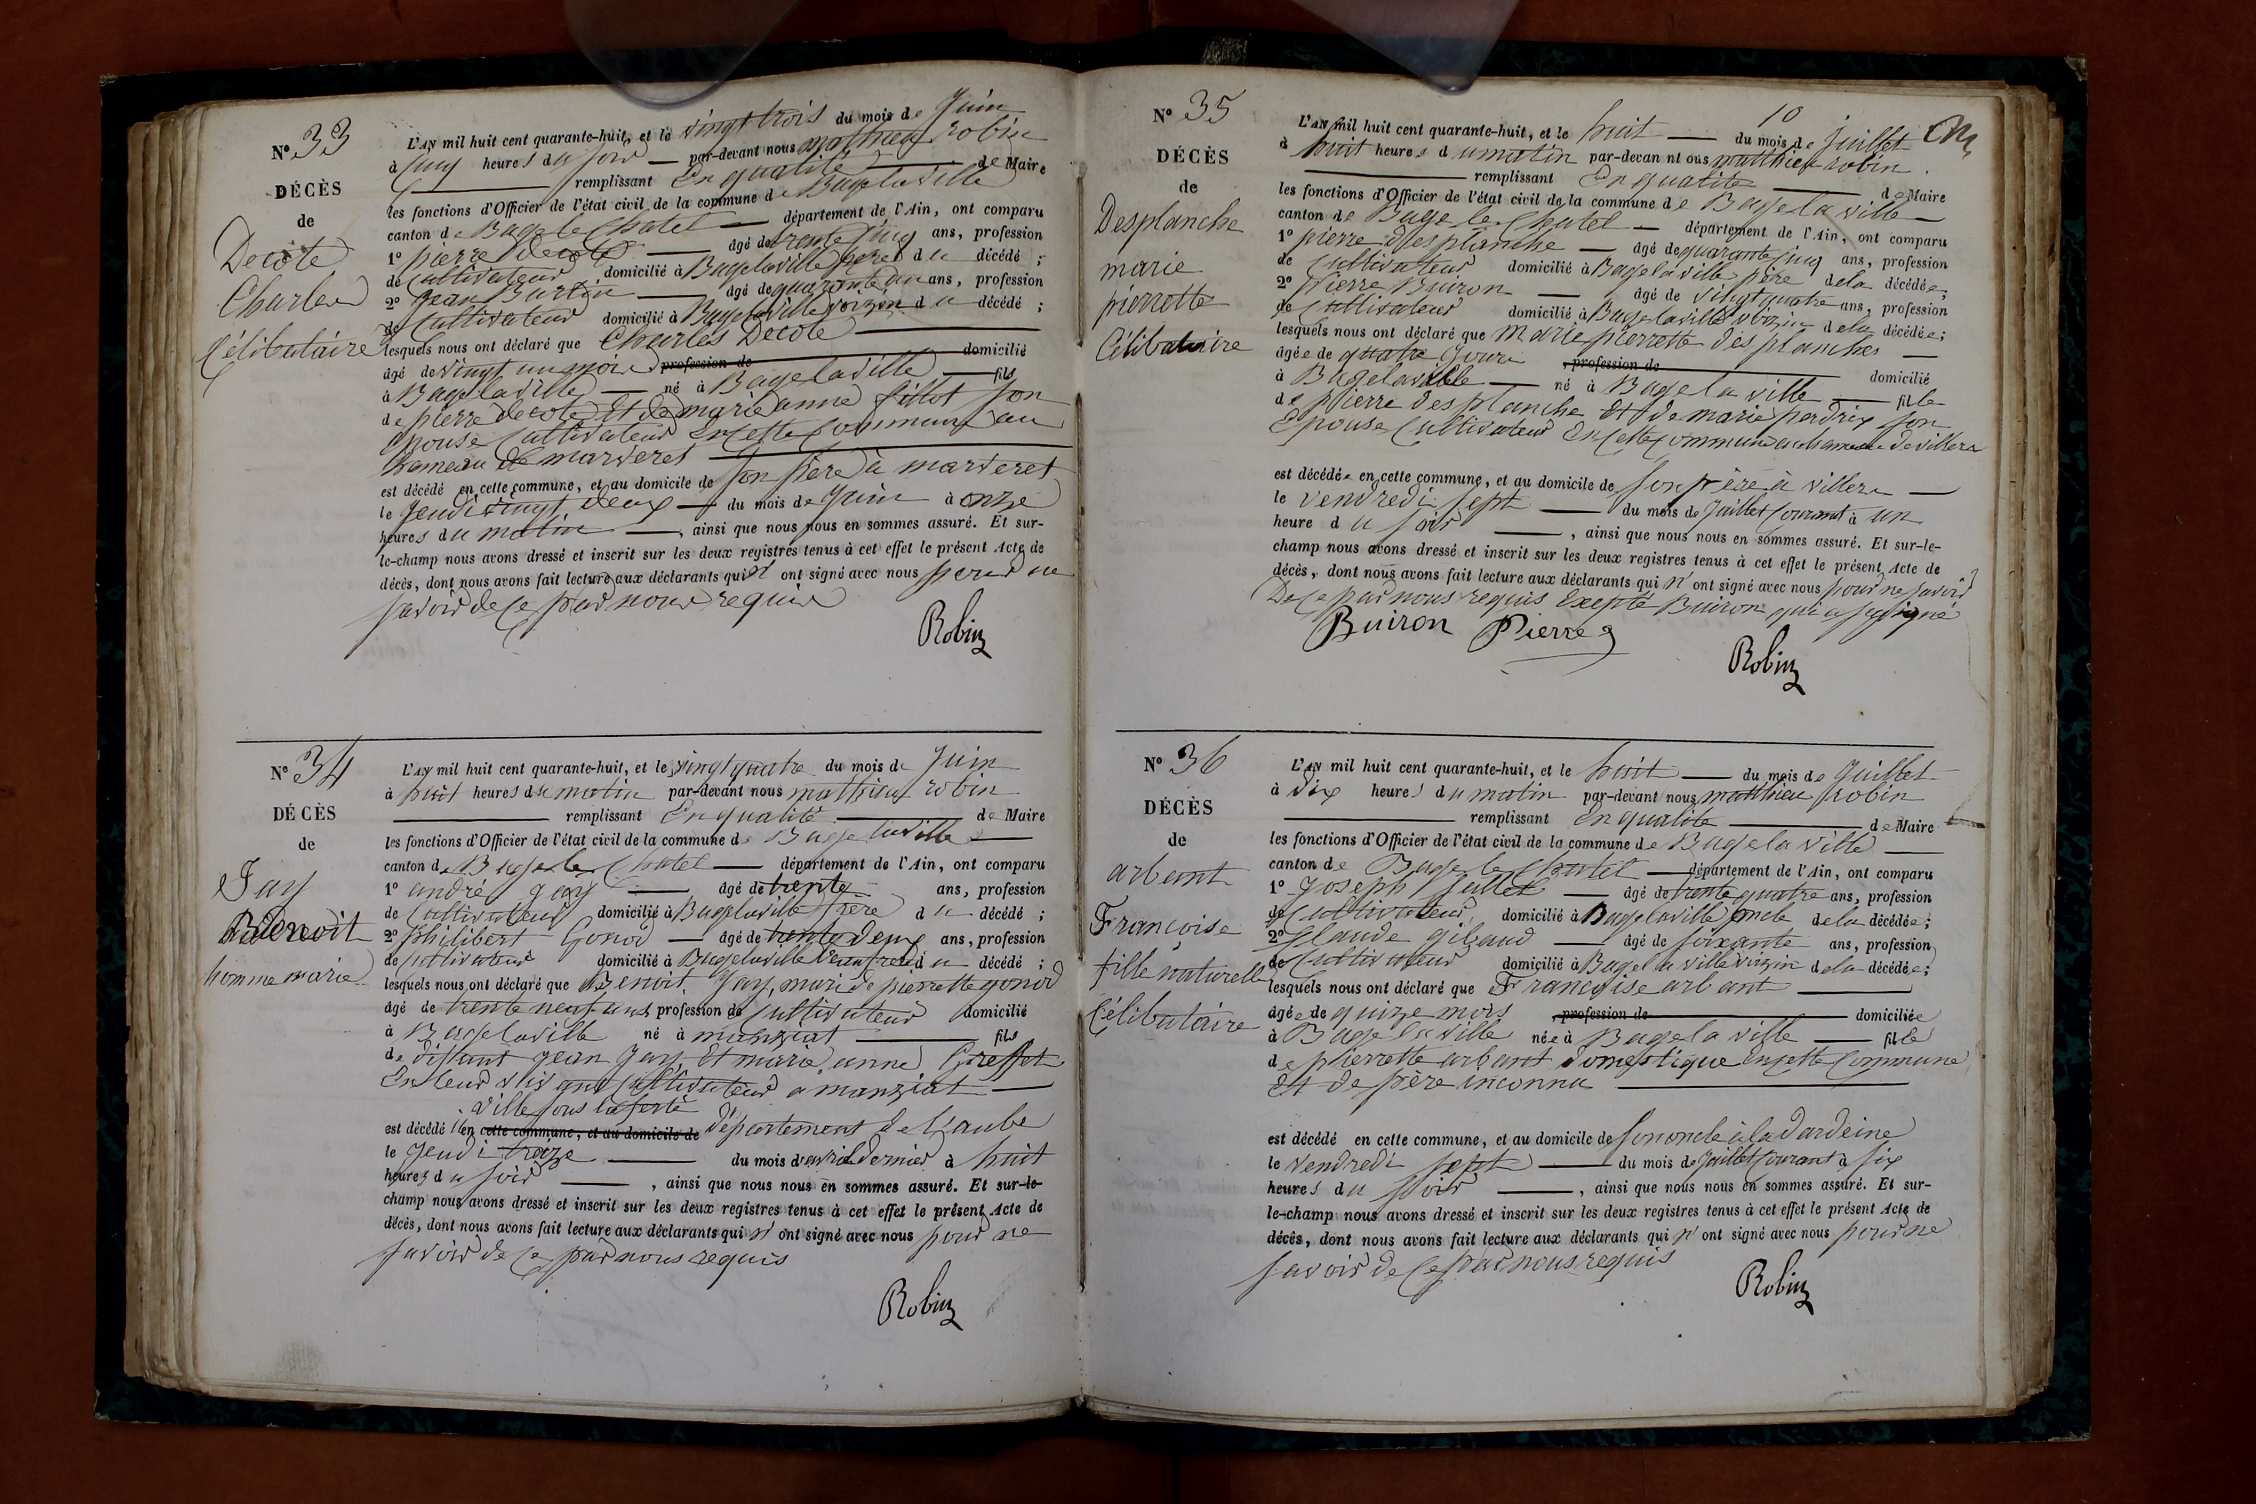 N° 33
DÉCÈS
de
Decote
Charles
Célibataire
L'AN mil huit cent quarante-huit, et le vingt trois du mois de Juin
à cinq heures du soir par-devant nous mathieu robin
remplissant En qualité de Maire
les fonctions d'Officier de l'état civil de la commune de Bagelaville
canton de Bage le Chatel département de l'Ain, ont comparu
1° pierre decote âgé de trente cinq ans, profession
de Cultivateur domicilié à Bagelaville père du décédé ;
2° Jean Burtin âgé de quarante un ans, profession
de Cultivateur domicilié à Bagelaville voizin du décédé ;
lesquels nous ont déclaré que Charles Decote
âgé de vingt un mois profession de domicilié
à Bagelaville né à Bagelaville fils
de pierre decote Et de marie anne fillot son
Epouse Cultivateur En cette Commune au
hameau de marteret
est décédé en cette commune, et au domicile de son père à marteret
le Jeudi vingt deux du mois de Juin à onze
heures du matin , ainsi que nous nous en sommes assuré. Et sur-
le-champ nous avons dressé et inscrit sur les deux registres tenus à cet effet le présent Acte de
décès, dont nous avons fait lecture aux déclarants qui n' ont signé avec nous pour ne
savoir de ce par nous requis
Robin
N° 34
DÉCÈS
de
Jay
Benoit
homme marie
L'AN mil huit cent quarante-huit, et le vingt quatre du mois de Juin
à huit heures du matin par-devant nous mathieu robin
remplissant En qualité de Maire
les fonctions d'Officier de l'état civil de la commune de Bagelaville
canton de Bage le Chatel département de l'Ain, ont comparu
1° andré Jay âgé de trente ans, profession
de Cultivateur domicilié à Bagelaville frère du décédé ;
2° philibert Gonod âgé de trente deux ans, profession
de Cultivateur domicilié à Bagelaville beau frère du décédé ;
lesquels nous ont déclaré que Benoit Jay, mari de pierrette gonod
âgé de trente neuf ans profession de Cultivateur domicilié
à Bagelaville né à manziat fils
de défunt Jean Jay, Et marie anne Greffet
En leur vivant Cultivateur a manziat
ville sous laferté
est décédé en cette commune, et au domicile de Département de l'aube
le Jeudi treize du mois d'avril dernier à huit
heures du soir , ainsi que nous nous en sommes assuré. Et sur-le-
champ nous avons dressé et inscrit sur les deux registres tenus à cet effet le présent Acte de
décès, dont nous avons fait lecture aux déclarants qui n' ont signé avec nous pour ne
savoir de ce par nous requis
Robin
N° 35
DÉCÈS
de
Desplanche
marie
pierrette
Célibataire
10
L'AN mil huit cent quarante-huit, et le huit du mois de Juillet
à huit heures du matin par-devan nt ous matthieu robin
remplissant En qualité de Maire
les fonctions d'Officier de l'état civil de la commune de Bagelaville
canton de Bage le Chatel département de l'Ain, ont comparu
1° pierre desplanche âgé de quarante cinq ans, profession
de Cultivateur domicilié à Bagelaville père dela décédée;
2° Pierre Buiron âgé de vingt quatre ans, profession
de Cultivateur domicilié à Bagelaville voizin dela décédée;
lesquels nous ont déclaré que marie pierrette desplanches
âgée de quatre Jours profession de domicilié
à Bagelaville né à Bagelaville fille
de pierre desplanche Et de marie perdrix son
Epouse Cultivateur En cette Commune au hameau de villers
est décédée en cette commune, et au domicile de son père à villers
le vendredi sept du mois de Juillet Courant à un
heure du soir , ainsi que nous nous en sommes assuré. Et sur-le-
champ nous avons dressé et inscrit sur les deux registres tenus à cet effet le présent Acte de
décès, dont nous avons fait lecture aux déclarants qui n' ont signé avec nous pour ne savoir
De ce par nous requis Exepté Buiron qui a signé
Buiron Pierre
Robin
N° 36
DÉCÈS
de
arbant
Françoise
fille naturelle
Célibataire
L'AN mil huit cent quarante-huit, et le huit du mois de Juillet
à dix heures du matin par-devant nous matthieu robin
remplissant En qualité de Maire
les fonctions d'Officier de l'état civil de la commune de Bagelaville
canton de Bage le Chatel département de l'Ain, ont comparu
1° Joseph Jullet âgé de trente quatre ans, profession
de Cultivateur domicilié à Bagelaville oncle dela décédée;
2° Claude gibaud âgé de soixante ans, profession
de Cultivateur domicilié à Bagelaville voizin dela décédée;
lesquels nous ont déclaré que Françoise arbant
âgée de quinze mois profession de domiciliée
à Bagelaville née à Bagelaville fille
de pierrette arbant Domestique En cette Commune
Et de père inconnu
est décédé en cette commune, et au domicile de son oncle à la dardeine
le vendredi sept du mois de Juillet Courant à six
heures du soir , ainsi que nous nous en sommes assuré. Et sur-
le-champ nous avons dressé et inscrit sur les deux registres tenus à cet effet le présent Acte de
décès, dont nous avons fait lecture aux déclarants qui n' ont signé avec nous pour ne
savoir de ce par nous requis
Robin